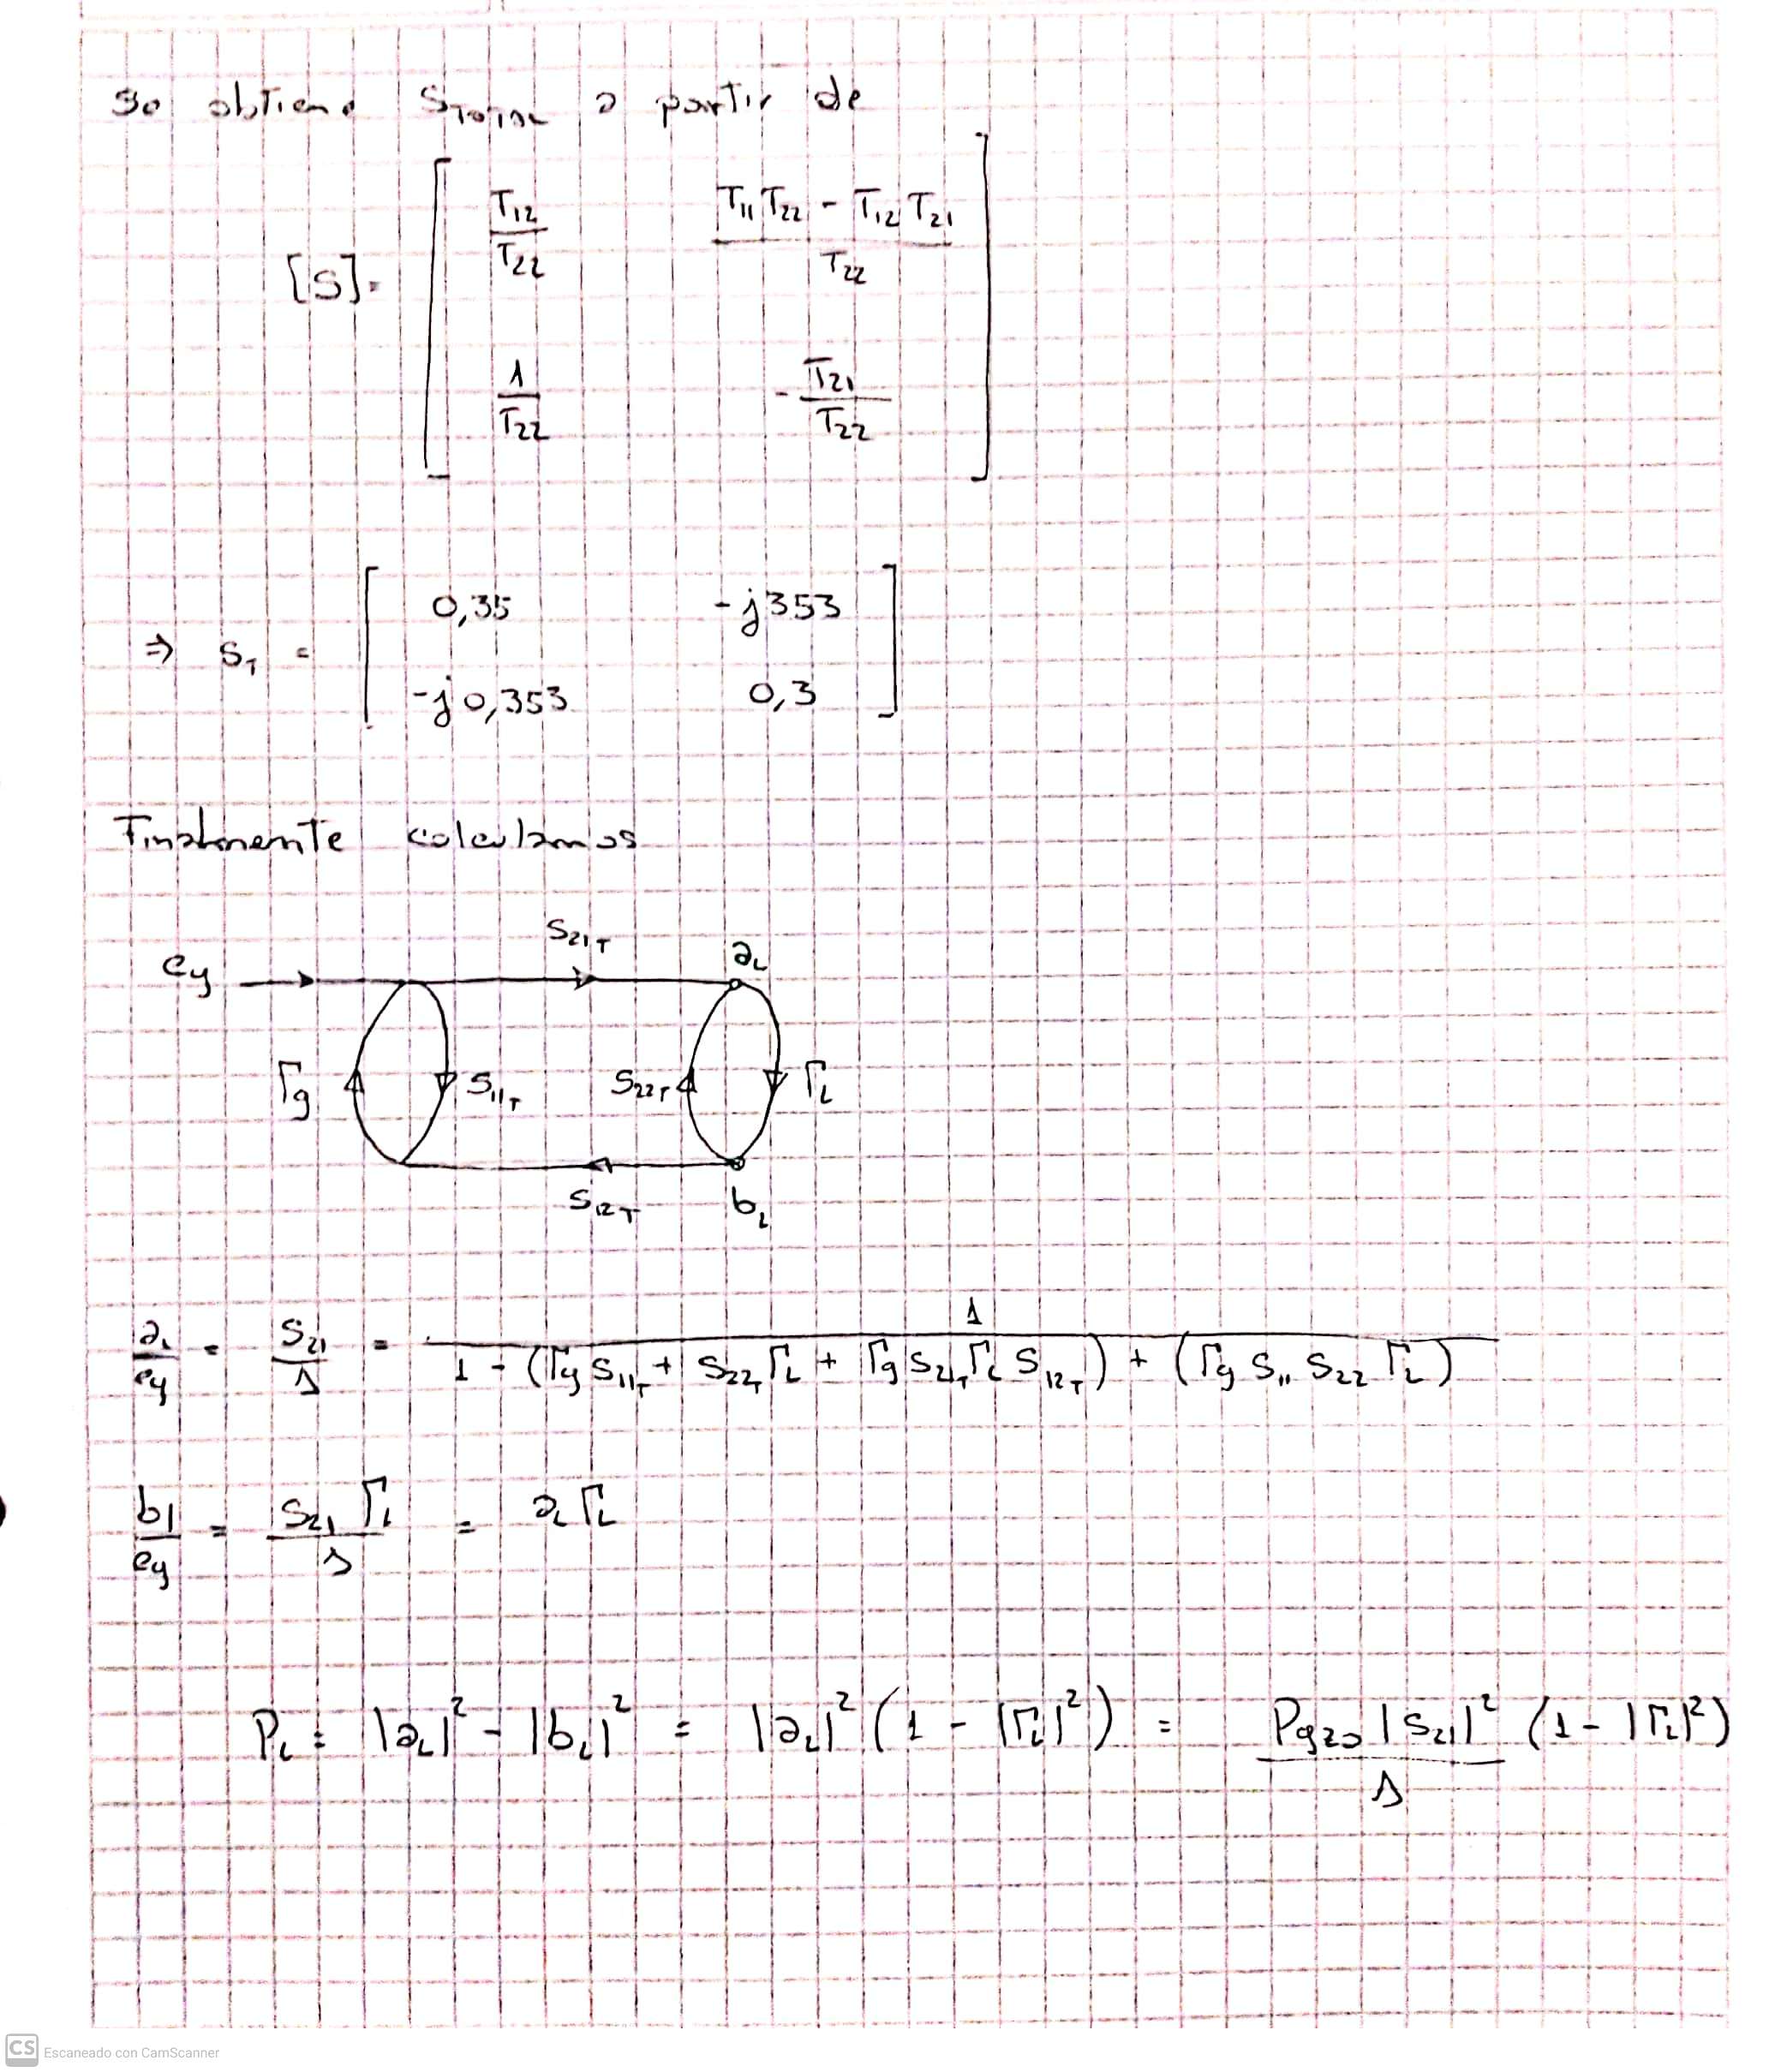 Se obtiene S_TOTAL a partir de
[S] = [ T12/T22   (T11 T22 - T12 T21)/T22
1/T22   - T21/T22 ]
⇒ S_T = [ 0,35   -j353
-j0,353   0,3 ]
Finalmente calculamos
S21T
eg   aL
Γg   S11T   S22T   ΓL
S12T   bL
aL/eg = S21/Δ = 1/(1 - (Γg S11T + S22T ΓL + Γg S21T ΓL S12T) + (Γg S11 S22 ΓL))
bL/eg = S21 ΓL/Δ = aL ΓL
PL = |aL|² - |bL|² = |aL|² (1 - |ΓL|²) = Pgzo |S21|²/Δ (1 - |ΓL|²)
CS Escaneado con CamScanner